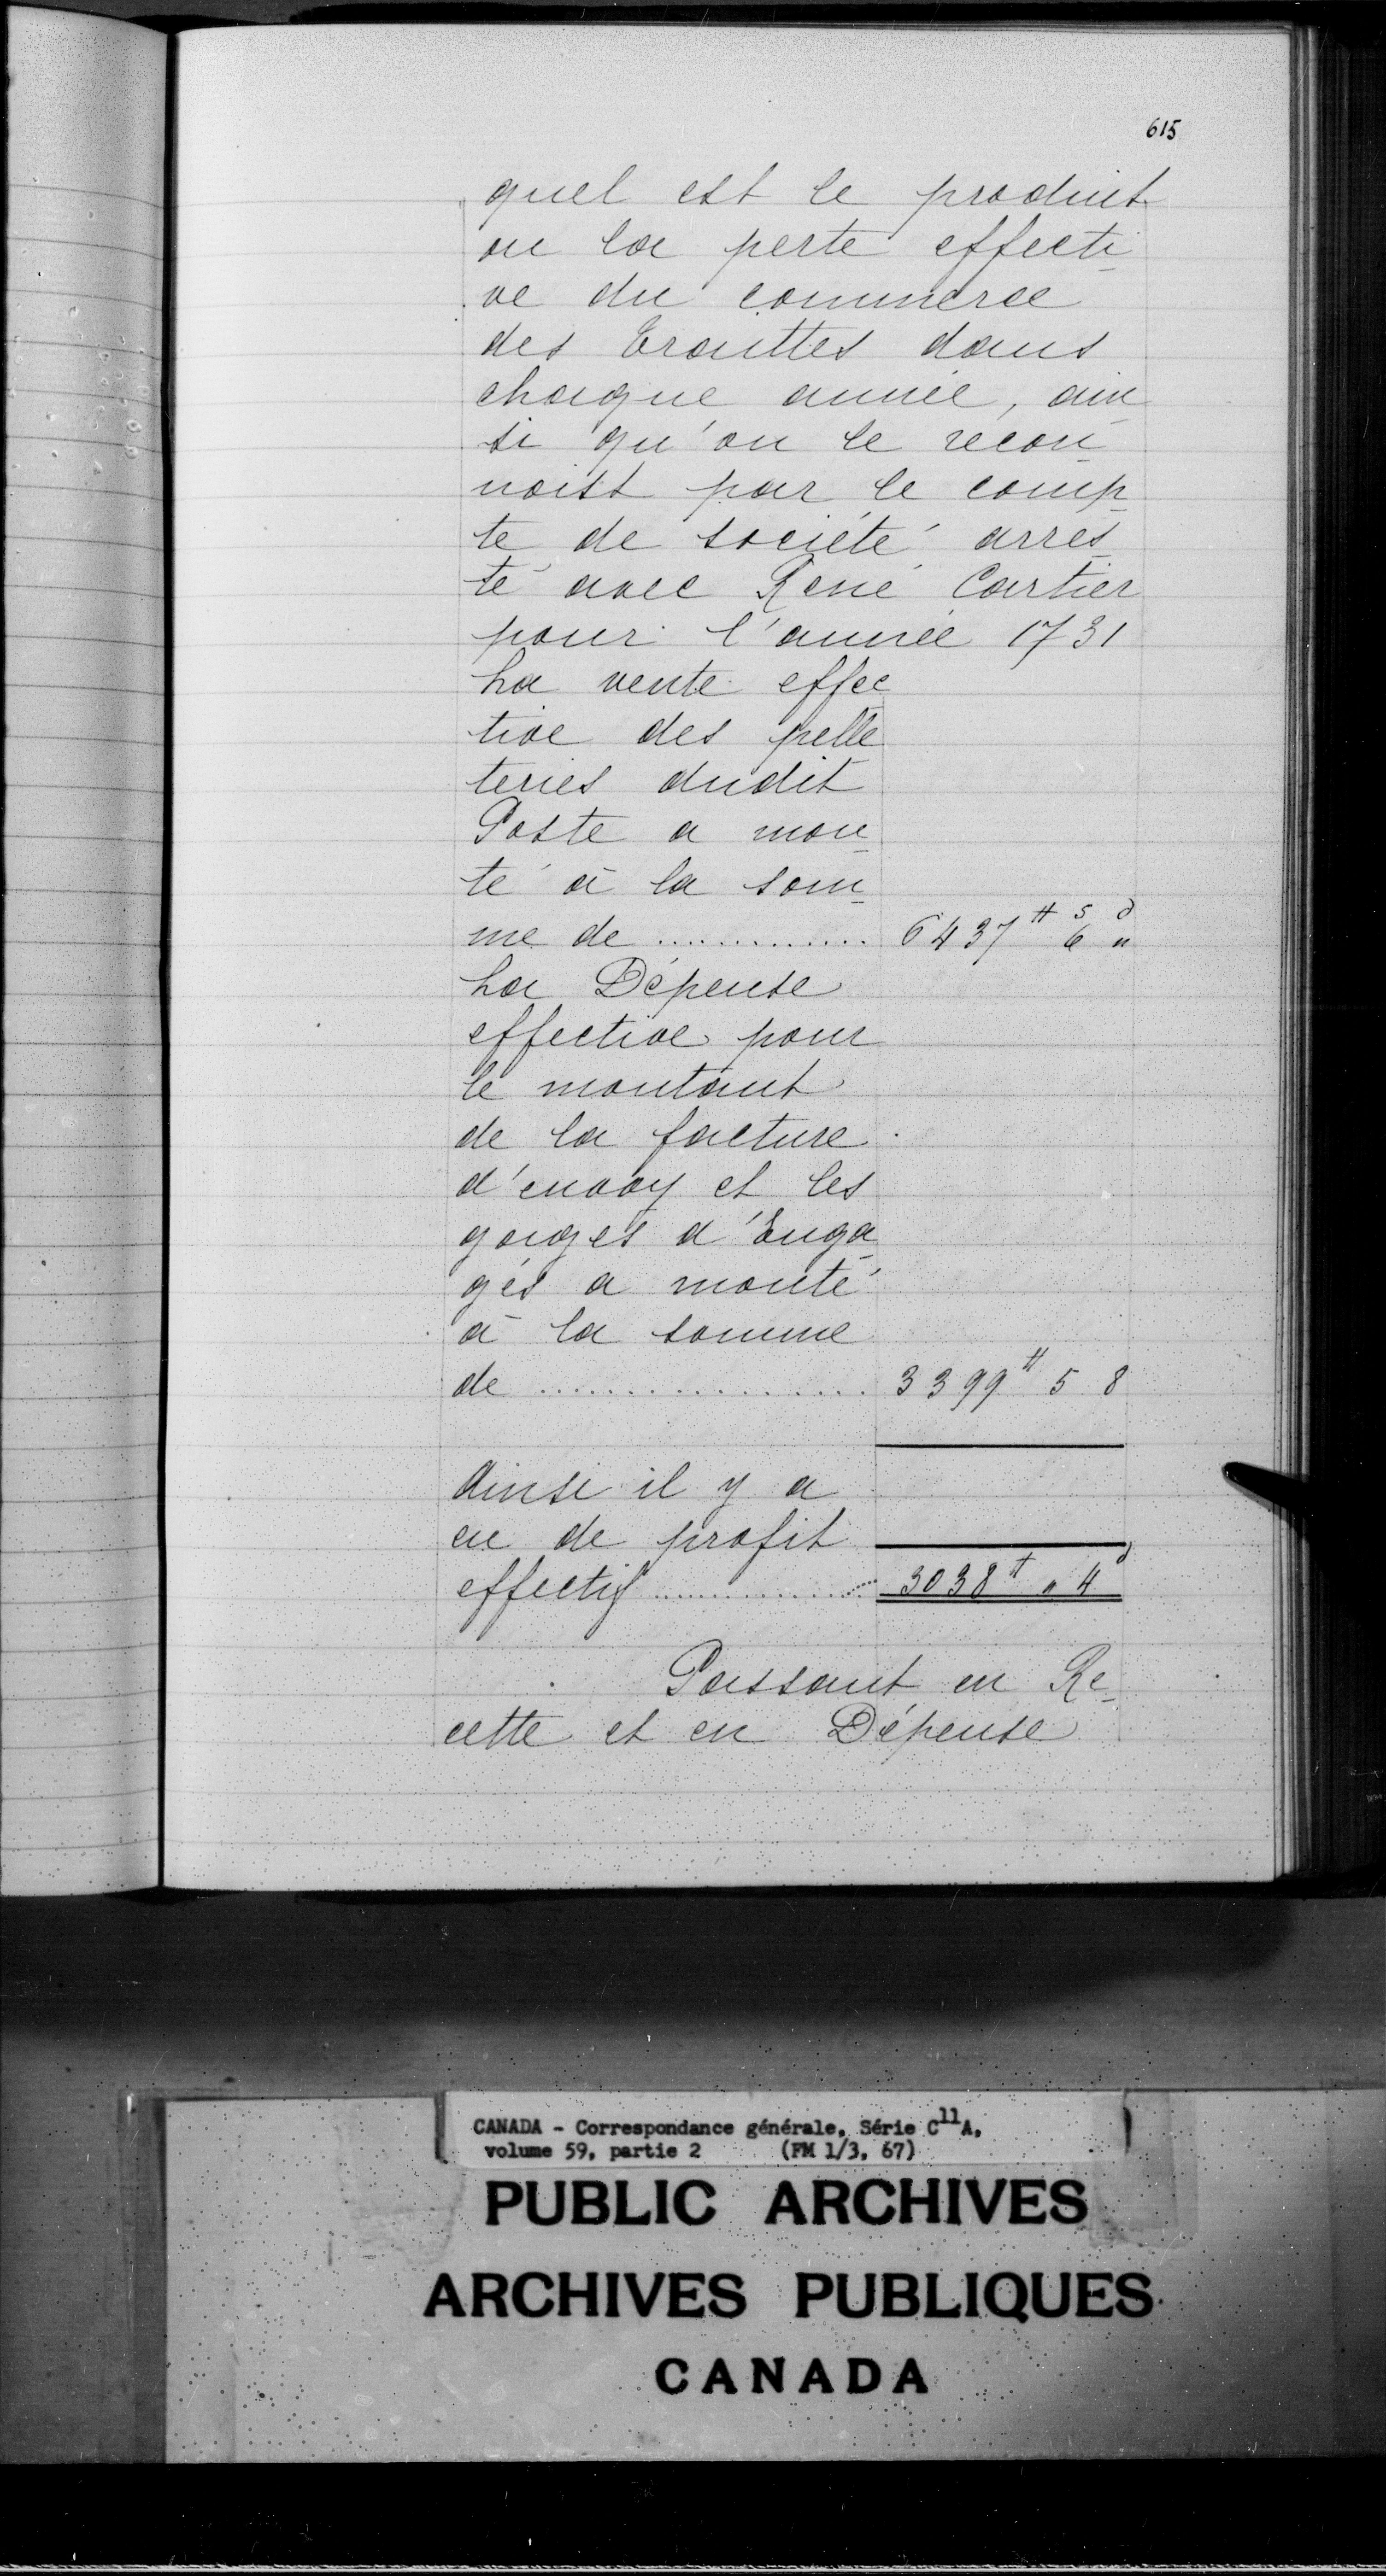 615
quel est le produit
ou la perte effecti
ve du commerce
des traittes dans
chaque année, ain
si qu'on le recon
noist par le comp
te de société arres
té avec René Cartier
pour l'année 1731
La vente effec
tive des pelle
teries dudit
Poste a mon
té à la som
me de ............. 6437# 6s "d
La Dépense
effective pour
le montant
de la facture
d'envoy et les
gaiges d'Enga
gés a monté
à la somme
de .................. 3399# 5 8
ainsi il y a
eu de profit
effectif ............... 3038# " 4d
Passant en Re-
cette et en Dépense
CANADA - Correspondance générale, Série C11A,
volume 59, partie 2 (FM 1/3, 67)
PUBLIC ARCHIVES
ARCHIVES PUBLIQUES
CANADA